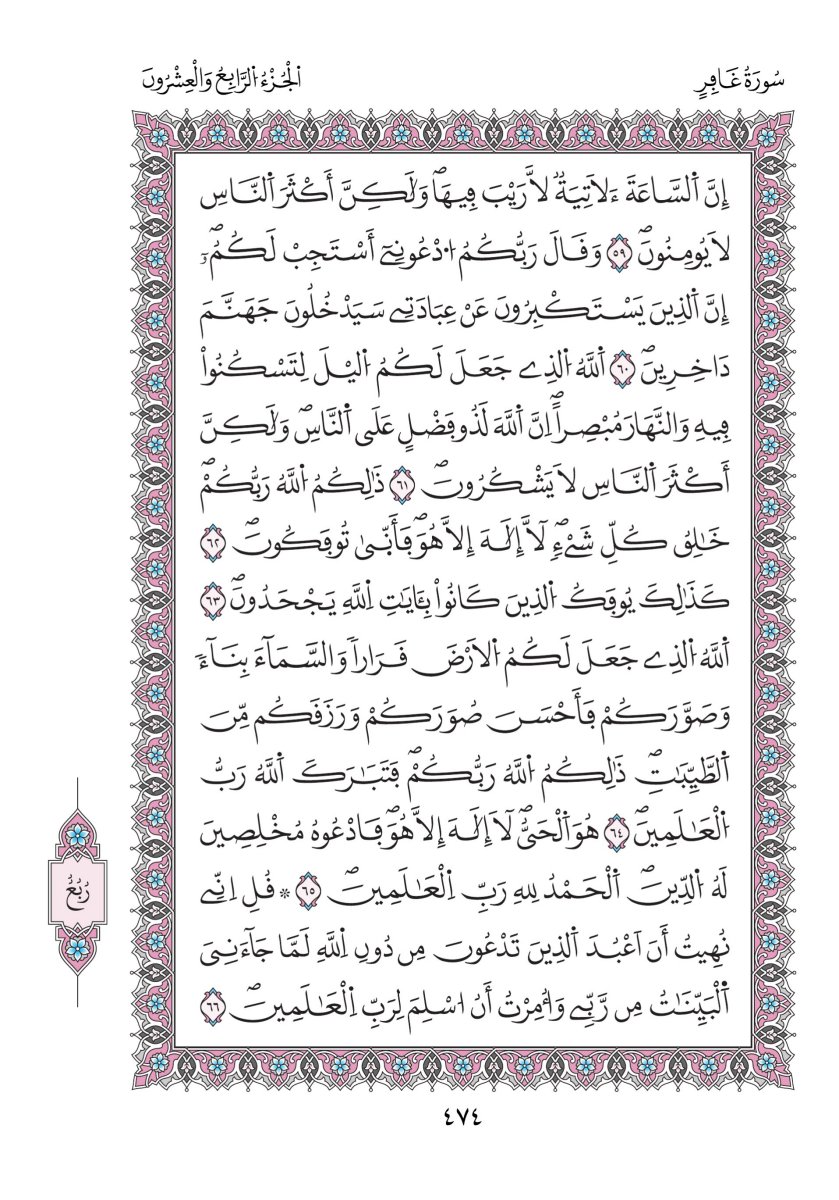 سُورَةُ غَافِرٍ
اَلْجُزْءُ اَلرَّابِعُ وَالْعِشْرُونَ
إِنَّ اَ۬لسَّاعَةَ ءَلَاتِيَةٞ لَّا رَيْبَ فِيهَاۖ وَلَٰكِنَّ أَكْثَرَ اَ۬لنَّاسِ
لَا يُومِنُونَۖ ٥٩ وَقَالَ رَبُّكُمُ اُ۟دْعُونِےٓ أَسْتَجِبْ لَكُمُۥٓۖ
إِنَّ اَ۬لذِينَ يَسْتَكْبِرُونَ عَنْ عِبَادَتِے سَيَدْخُلُونَ جَهَنَّمَ
دَاخِرِينَۖ ٦٠ اَ۬للَّهُ اُ۬لذِے جَعَلَ لَكُمُ اُ۬ليْلَ لِتَسْكُنُواْ
فِيهِ وَالنَّهَارَ مُبْصِراًۖ اِنَّ اَ۬للَّهَ لَذُو فَضْلٍ عَلَى اَ۬لنَّاسِۖ وَلَٰكِنَّ
أَكْثَرَ اَ۬لنَّاسِ لَا يَشْكُرُونَۖ ٦١ ذَٰلِكُمُ اُ۬للَّهُ رَبُّكُمْۖ
خَٰلِقُ كُلِّ شَےْءٖۖ لَّآ إِلَٰهَ إِلَّا هُوَۖ فَأَنّ۪ىٰ تُوفَكُونَۖ ٦٢
كَذَٰلِكَ يُوفَكُ اُ۬لذِينَ كَانُواْ بِـَٔايَٰتِ اِ۬للَّهِ يَجْحَدُونَۖ ٦٣
اَ۬للَّهُ اُ۬لذِے جَعَلَ لَكُمُ اُ۬لَارْضَ قَرَاراٗ وَالسَّمَآءَ بِنَآءٗ
وَصَوَّرَكُمْ فَأَحْسَنَ صُوَرَكُمْ وَرَزَقَكُم مِّنَ
اَ۬لطَّيِّبَٰتِۖ ذَٰلِكُمُ اُ۬للَّهُ رَبُّكُمْۖ فَتَبَٰرَكَ اَ۬للَّهُ رَبُّ
اُ۬لْعَٰلَمِينَۖ ٦٤ هُوَ اَ۬لْحَيُّۖ لَآ إِلَٰهَ إِلَّا هُوَۖ فَادْعُوهُ مُخْلِصِينَ
لَهُ اُ۬لدِّينَۖ اَ۬لْحَمْدُ لِلهِ رَبِّ اِ۬لْعَٰلَمِينَۖ ٦٥ ۞ قُلِ اِنِّے
نُهِيتُ أَنَ اَعْبُدَ اَ۬لذِينَ تَدْعُونَ مِن دُونِ اِ۬للَّهِ لَمَّا جَآءَنِيَ
اَ۬لْبَيِّنَٰتُ مِن رَّبِّے وَأُمِرْتُ أَنُ اُسْلِمَ لِرَبِّ اِ۬لْعَٰلَمِينَۖ ٦٦
رُبُعُ
٤٧٤